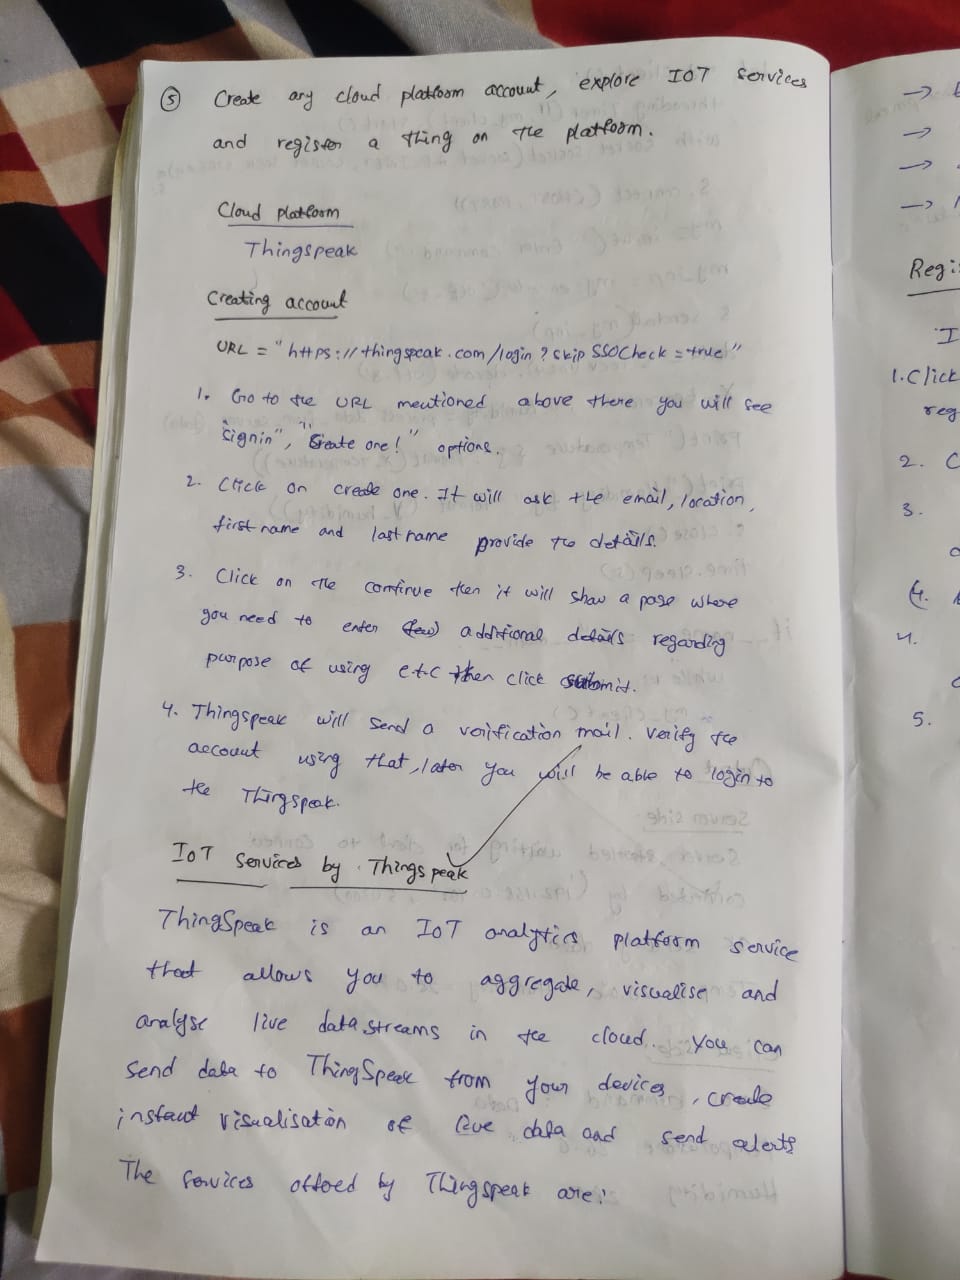 5 Create any cloud platform account, explore IOT services
and register a thing on the platform.
Cloud platform
Thingspeak
Creating account
URL = "https://thingspeak.com/login?skipSSOCheck=true"
1. Go to the URL mentioned above there you will see
"signin", "Create one!" options.
2. Click on create one. It will ask the email, location,
first name and last name provide the details.
3. Click on the continue then it will show a page where
you need to enter few additional details regarding
purpose of using etc then click submit.
4. Thingspeak will send a verification mail. verify the
account using that, later you will be able to login to
the Thingspeak.
IoT services by Thingspeak
ThingSpeak is an IoT analytics platform service
that allows you to aggregate, visualise and
analyse live data streams in the cloud. You can
send data to ThingSpeak from your devices, create
instant visualisation of live data and send alerts
The services offered by Thingspeak are:
Regi
I
1. Click
reg
2. C
3.
4.
4.
5.